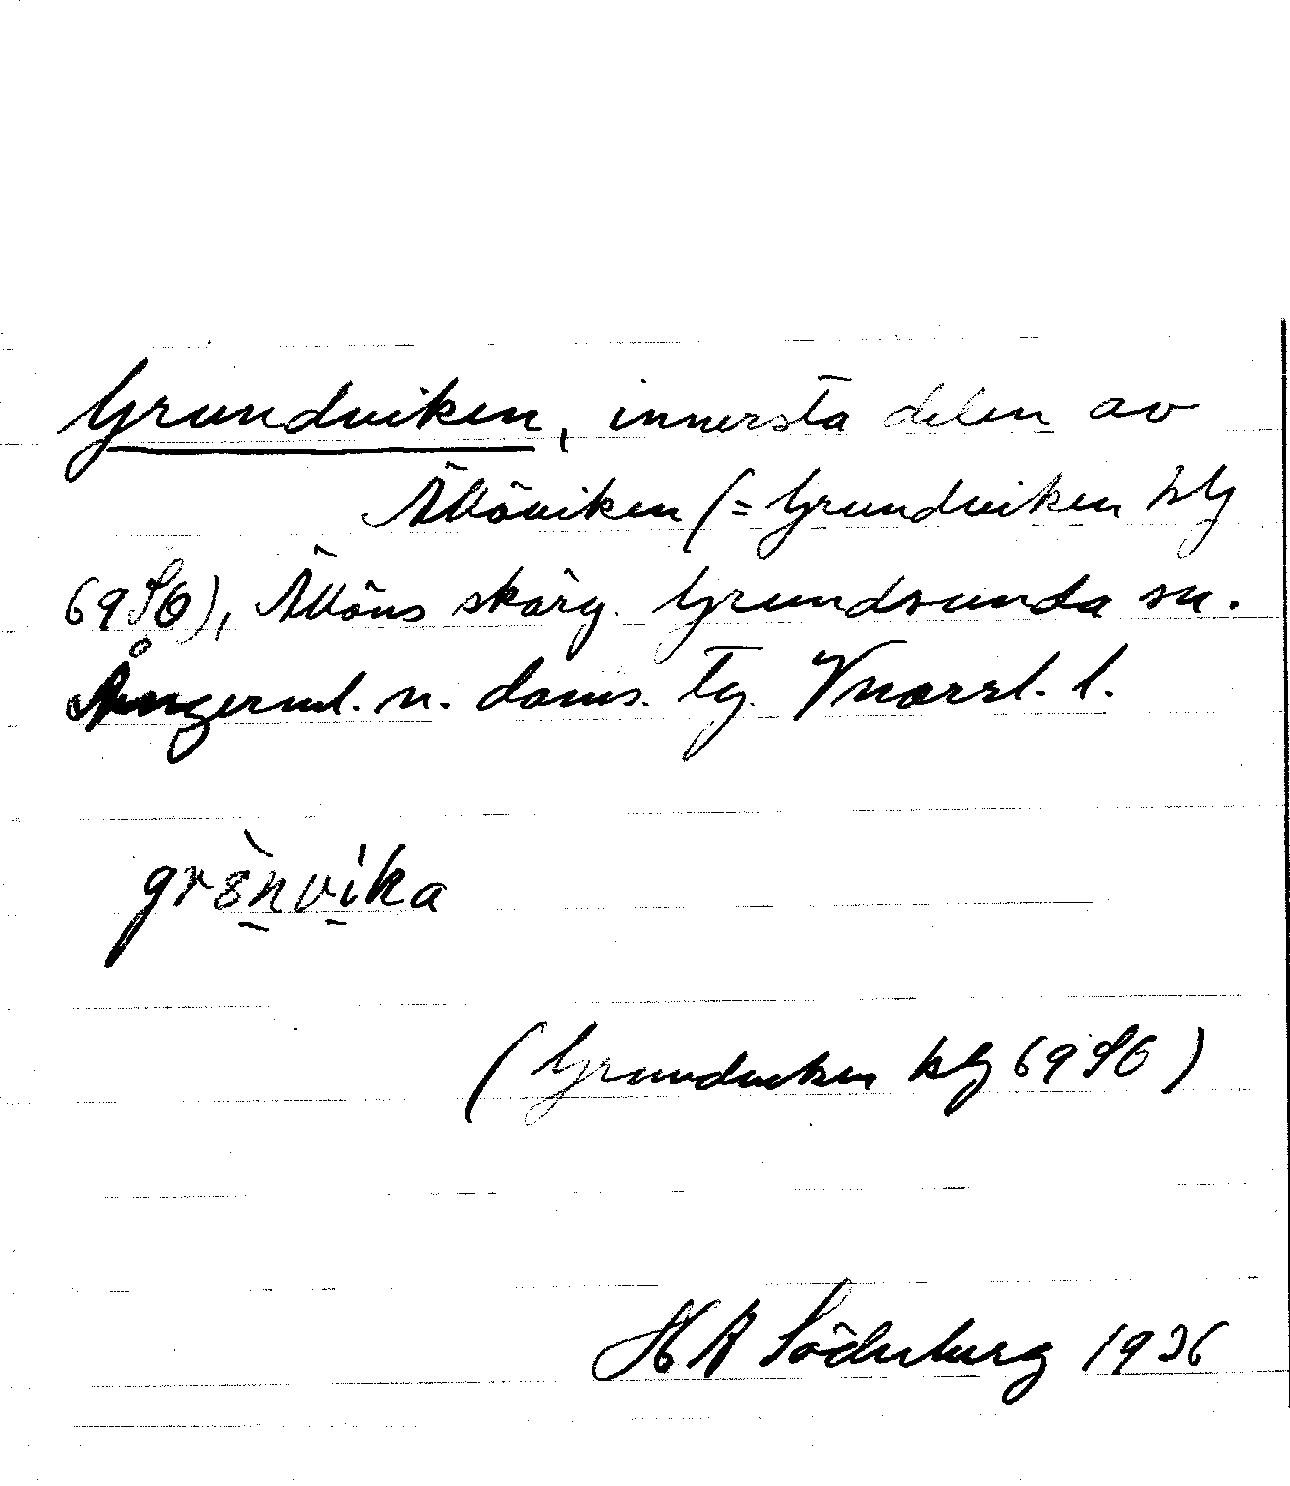 Grundviken, innersta delen av
Älköviken (= Grundviken hlg
69SO), Älköns skärg. Grundsunda sn.
Ångerml. n. doms. tg. Vnorrl. l.
grönvika
(Grundviken hlg 69SO)
Söderberg 1936